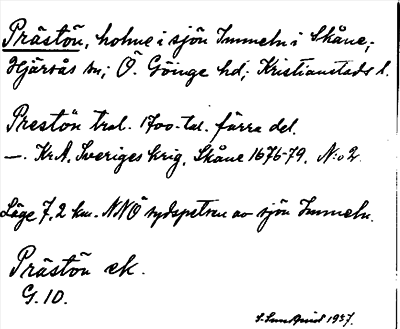 Prästön, holme i sjön Immeln i Skåne;
Hjärsås sn; Ö. Göinge hd; Kristianstads l.
Prestön trol. 1700-tal. förra del.
—. KrA, Sveriges krig, Skåne 1676-79, N:o 2.
Läge 7,2 km. NNÖ sydspetsen av sjön Immeln.
Prästön ek.
G. 10.
S. Sundquist 1937.